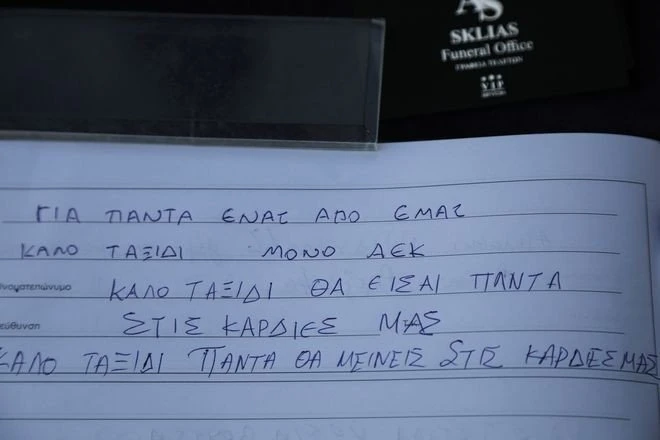 AS
SKLIAS
Funeral Office
ΓΡΑΦΕΙΑ ΤΕΛΕΤΩΝ
VIP
ΓΙΑ ΠΑΝΤΑ ΕΝΑΣ ΑΠΟ ΕΜΑΣ
ΚΑΛΟ ΤΑΞΙΔΙ ΜΟΝΟ ΑΕΚ
ΚΑΛΟ ΤΑΞΙΔΙ ΘΑ ΕΙΣΑΙ ΠΑΝΤΑ
ΣΤΙΣ ΚΑΡΔΙΕΣ ΜΑΣ
ΚΑΛΟ ΤΑΞΙΔΙ ΠΑΝΤΑ ΘΑ ΜΕΙΝΕΙΣ ΣΤΙΣ ΚΑΡΔΙΕΣ ΜΑΣ